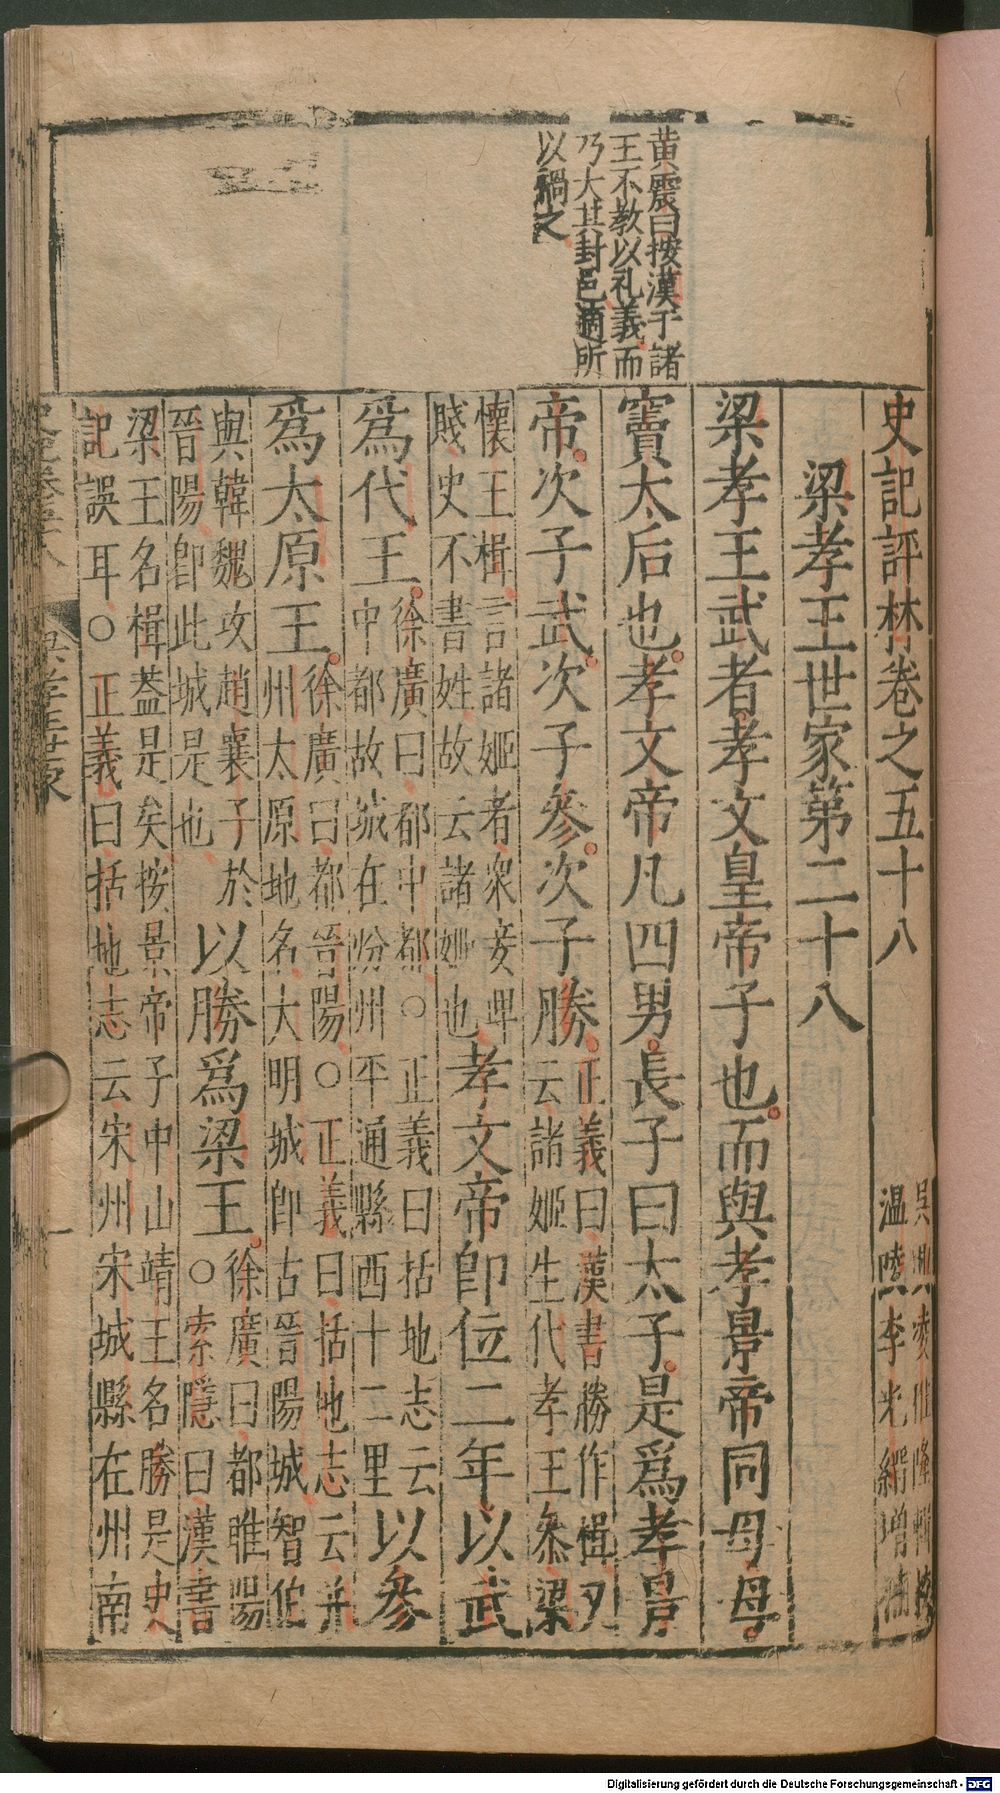 史記評林卷之五十八
吳興凌稚隆輯校
温陵李光縉增補
梁孝王世家第二十八
梁孝王武者孝文皇帝子也而與孝景帝同母母
竇太后也孝文帝凡四男長子曰太子是爲孝景
帝次子武次子參次子勝
正義曰漢書勝作楫又
云諸姬生代孝王參梁
懷王楫言諸姬者衆妾卑
賤史不書姓故云諸姬也
孝文帝卽位二年以武
爲代王
徐廣曰都中都○正義曰括地志云
中都故城在汾州平遥縣西十二里
以參
爲太原王
徐廣曰都晉陽○正義曰括地志云并
州太原地名大明城卽古晉陽城智伯
與韓魏攻趙襄子於
晉陽卽此城是也
以勝爲梁王
徐廣曰都睢陽
○索隱曰漢書
梁王名楫蓋是矣按景帝子中山靖王名勝是史
記誤耳○正義曰括地志云宋州宋城縣在州南
黄震曰按漢于諸
王不教以礼義而
乃大其封邑適所
以禍之
梁孝王世家
一
Digitalisierung gefördert durch die Deutsche Forschungsgemeinschaft - DFG